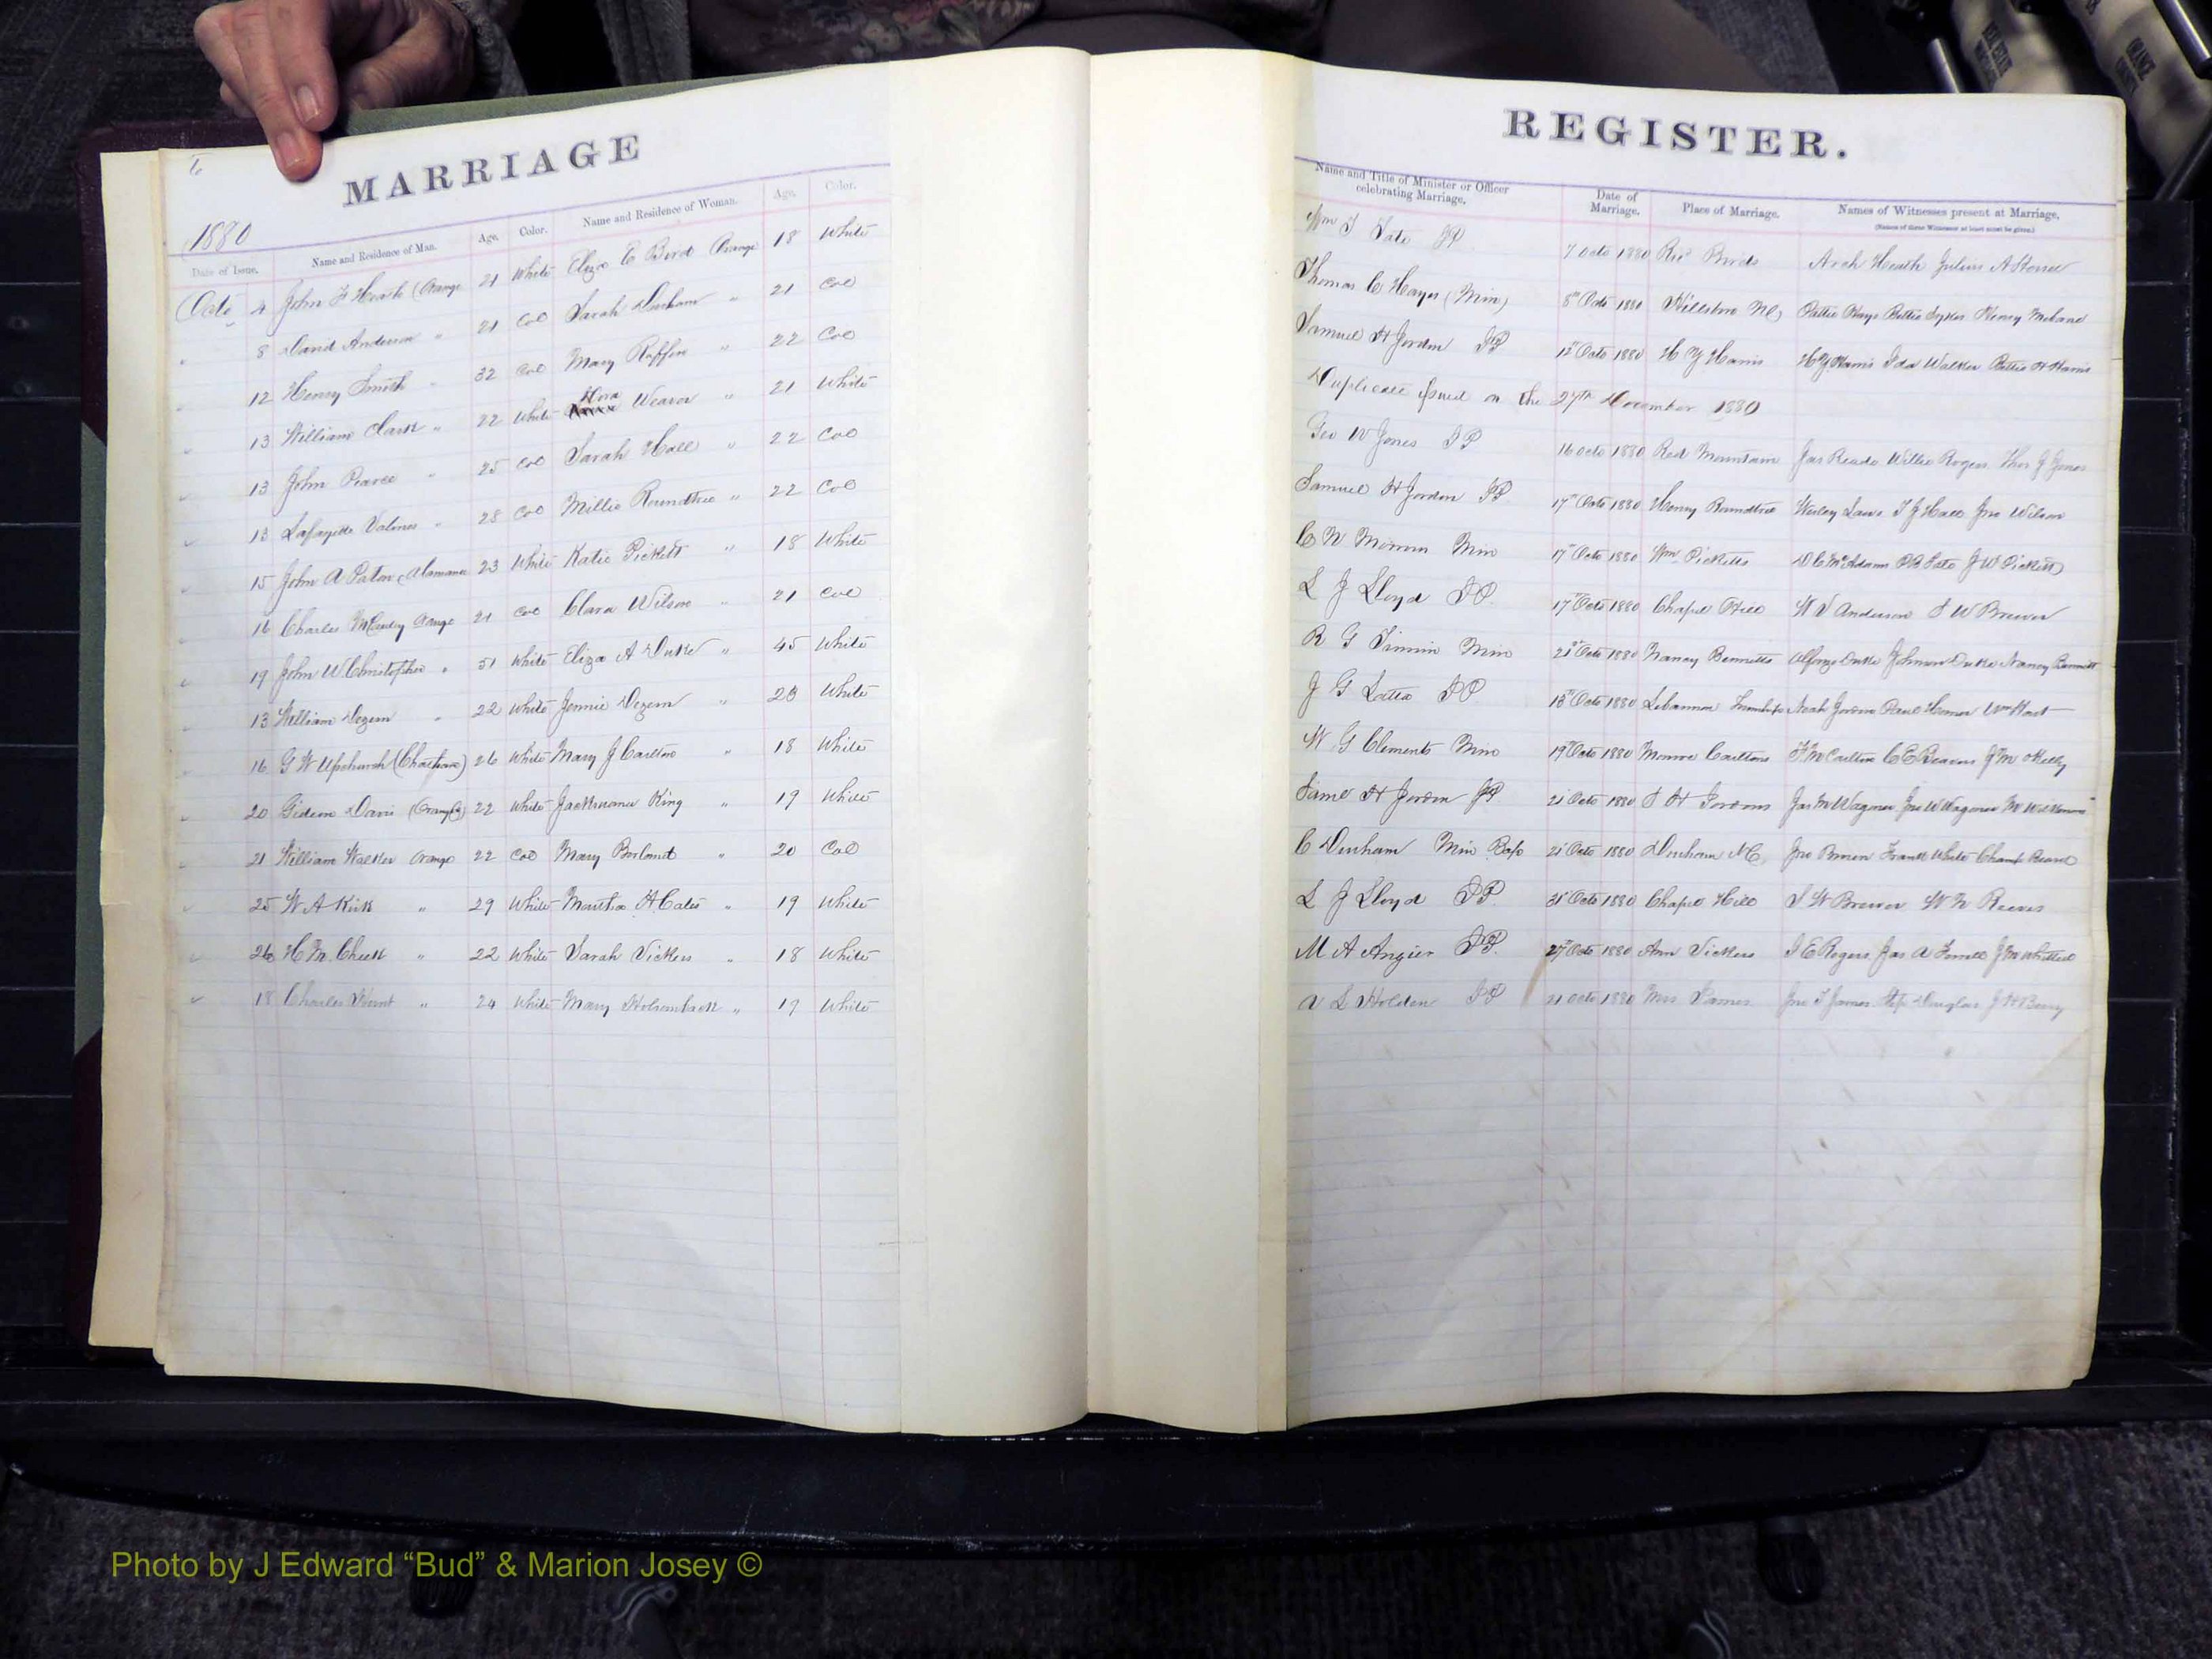 6
MARRIAGE
1880
Date of Issue. Name and Residence of Man. Age. Color. Name and Residence of Woman. Age. Color.
Octo 4 John F Heath (Orange 21 White Eliza E Bird Orange 18 White
" 8 David Anderson " 21 Col Sarah Durham " 21 Col
" 12 Henry Smith " 32 Col Mary Ruffin " 22 Col
" 13 William Clark " 22 White Weaver " 21 White
" 13 John Pearce " 25 Col Sarah Hall " 22 Col
" 13 Lafayette " 28 Col Millie Roundtree " 22 Col
" 15 John A Paton (Alamance 23 White Katie Pickett " 18 White
" 16 Charles McCauley Orange 21 Col Clara Wilson " 21 Col
" 19 John W Christopher " 51 White Eliza A Duke " 45 White
" 13 William Dezern " 22 White Jennie Dezern " 23 White
" 16 G W Upchurch (Chatham) 26 White Mary J Carlton " 18 White
" 20 Gideon Davis (Orange) 22 White King " 19 White
" 21 William Walker Orange 22 Col Mary Borland " 20 Col
" 25 W A Kirk " 29 White Martha H Cates " 19 White
" 26 H M Cheek " 22 White Sarah Vickers " 18 White
" 18 Charles Hunt " 24 White Mary " 19 White
REGISTER.
Name and Title of Minister or Officer celebrating Marriage. Date of Marriage. Place of Marriage. Names of Witnesses present at Marriage.
(Names of three Witnesses at least must be given.)
Wm T Tate JP 7 Octo 1880 Birds Arch Heath Julius A
Thomas C Hayes (Min) 8th Octo 1880 Hillsboro NC Henry Mebane
Samuel H Jordon JP 12th Octo 1880 H Y Harris H Y Harris Ida Walker Bettie H Harris
Duplicate Issued on the 27th November 1880
Geo W Jones JP 16 Octo 1880 Red Mountain Jas Reade Willie Rogers Thos J Jones
Samuel H Jordon JP 17th Octo 1880 Henry Roundtree Wesley Laws T J Hall Jno Wilson
C N Morrow Min 17th Octo 1880 Wm Picketts D C McAdams P B Tate J W Pickett
L J Lloyd JP 17th Octo 1880 Chapel Hill W J Anderson J W Brewer
R G Tinnin Min 21st Octo 1880 Nancy Bennetts Alfonzo Duke Johnson Duke Nancy Bennett
J G Latta JP 13th Octo 1880 Lebannon Township Noah Jordon Wm Hart
W G Clements Min 19th Octo 1880 Monroe Carltons T M Carlton J M Kelly
Saml H Jordon JP 21st Octo 1880 S H Jordons Jas M Wagoner Jno W Wagoner
C Durham Min Bap 21st Octo 1880 Durham NC Jno Brown Frank White
L J Lloyd JP 31st Octo 1880 Chapel Hill J W Brewer W N Reeves
M A Angier JP 27th Octo 1880 Ann Vickers J E Rogers Jas A Ferrell J M Whitted
A L Holden JP 21 Octo 1880 Mrs James Jno T James Douglas J H Berry
Photo by J Edward “Bud” & Marion Josey ©